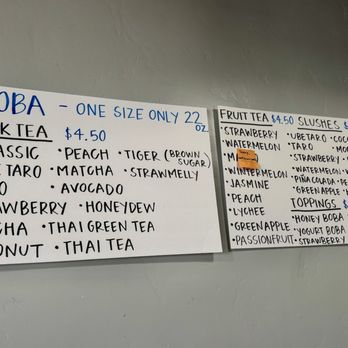 OBA - ONE SIZE ONLY 22 OZ.
K TEA $4.50
ASSIC • PEACH • TIGER (BROWN SUGAR)
E TARO • MATCHA • STRAWMELLY
O • AVOCADO
AWBERRY • HONEYDEW
CHA • THAI GREEN TEA
ONUT • THAI TEA
FRUIT TEA $4.50
• STRAWBERRY
WATERMELON
• M
• WINTERMELON
• JASMINE
• PEACH
• LYCHEE
• GREEN APPLE
• PASSIONFRUIT
SLUSHES $
• UBETARO • COC
• TARO • MO
• STRAWBERRY •
• WATERMELON •
• PIÑA COLADA • PE
• GREEN APPLE • H
TOPPINGS $
• HONEY BOBA
• YOGURT BOBA
• STRAWBERRY